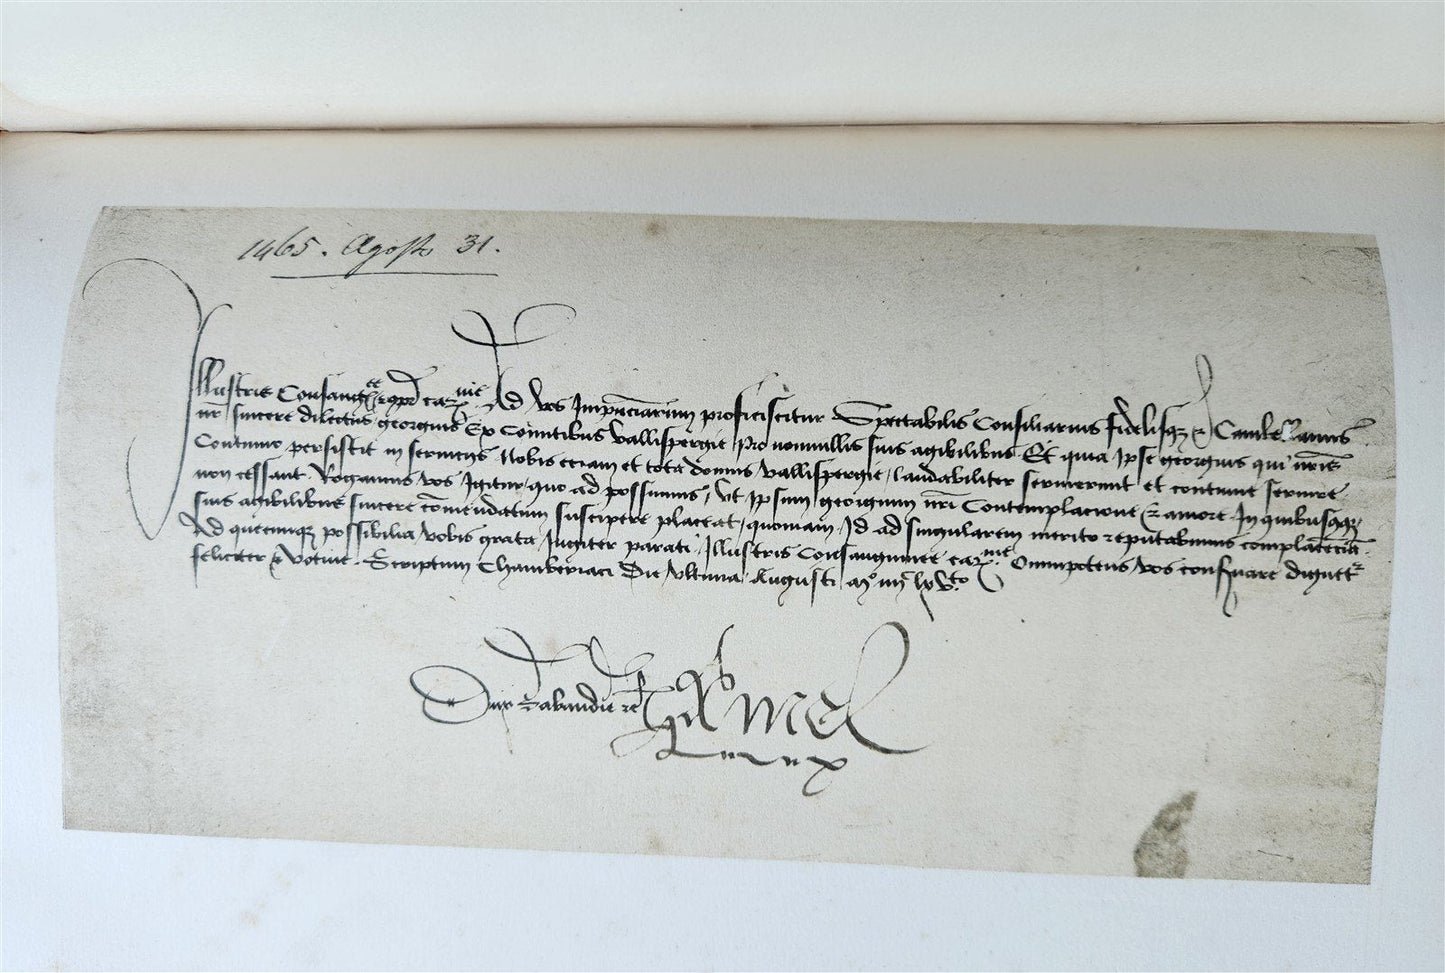 1465. Agosto 31.
Illustris Consang et compr carme Ad vos Impnciarum proficiscitur Spectabilis Consiliarius fidelisqz et Cambellanus
nr sincere dilectus georgius Ex Comitibus vallispergie pro nonnullis suis agibilibus Et quia Ipse georgius qui nris
Continuo persistit in serviciis Nobis eciam et tota domus vallispergie laudabiliter servierunt et continue servire
non cessant Rogamus vos Igitur quo ad possumus ut Ipsum georgium nri Contemplacione et amore In quibusqz
suis agibilibus sincere comendatum suscipere placeat quoniam Id ad singularem merito reputabimus complacenciam
Ad quecumqz possibilia vobis grata Jugiter parati Illustris Consanguinee carme Omnipotens vos conservare dignetur
feliciter et votive Scriptum Chamberiaci Die ultima Augusti lxvto
Dux Sabaudie etc